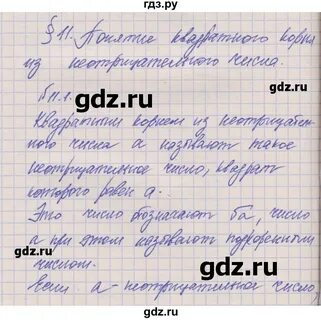 § 11. Понятие квадратного корня
из неотрицательного числа.
gdz.ru
gdz.ru
gdz.ru
§11.1.
Квадратным корнем из неотрицатель-
ного числа а называют такое
неотрицательное число, квадрат
gdz.ru
gdz.ru
которого равен а.
Это число обозначают √а, число
а при этом называют подкоренным
числом.
gdz.ru
gdz.ru
Если а - неотрицательное число,